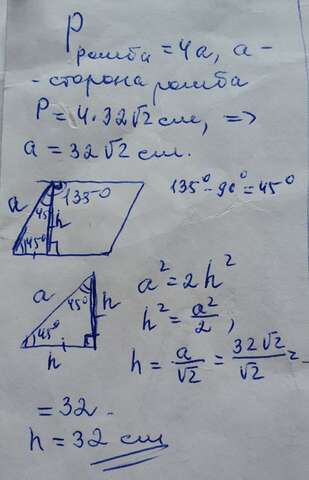 P ромба = 4a, a -
- сторона ромба
P = 4·32√2 см, =>
a = 32√2 см.
135° - 90° = 45°
a 45° 135° h 45°
a 45° h 45° h
a² = 2h²
h² = a²/2,
h = a/√2 = 32√2/√2 =
= 32.
h = 32 см